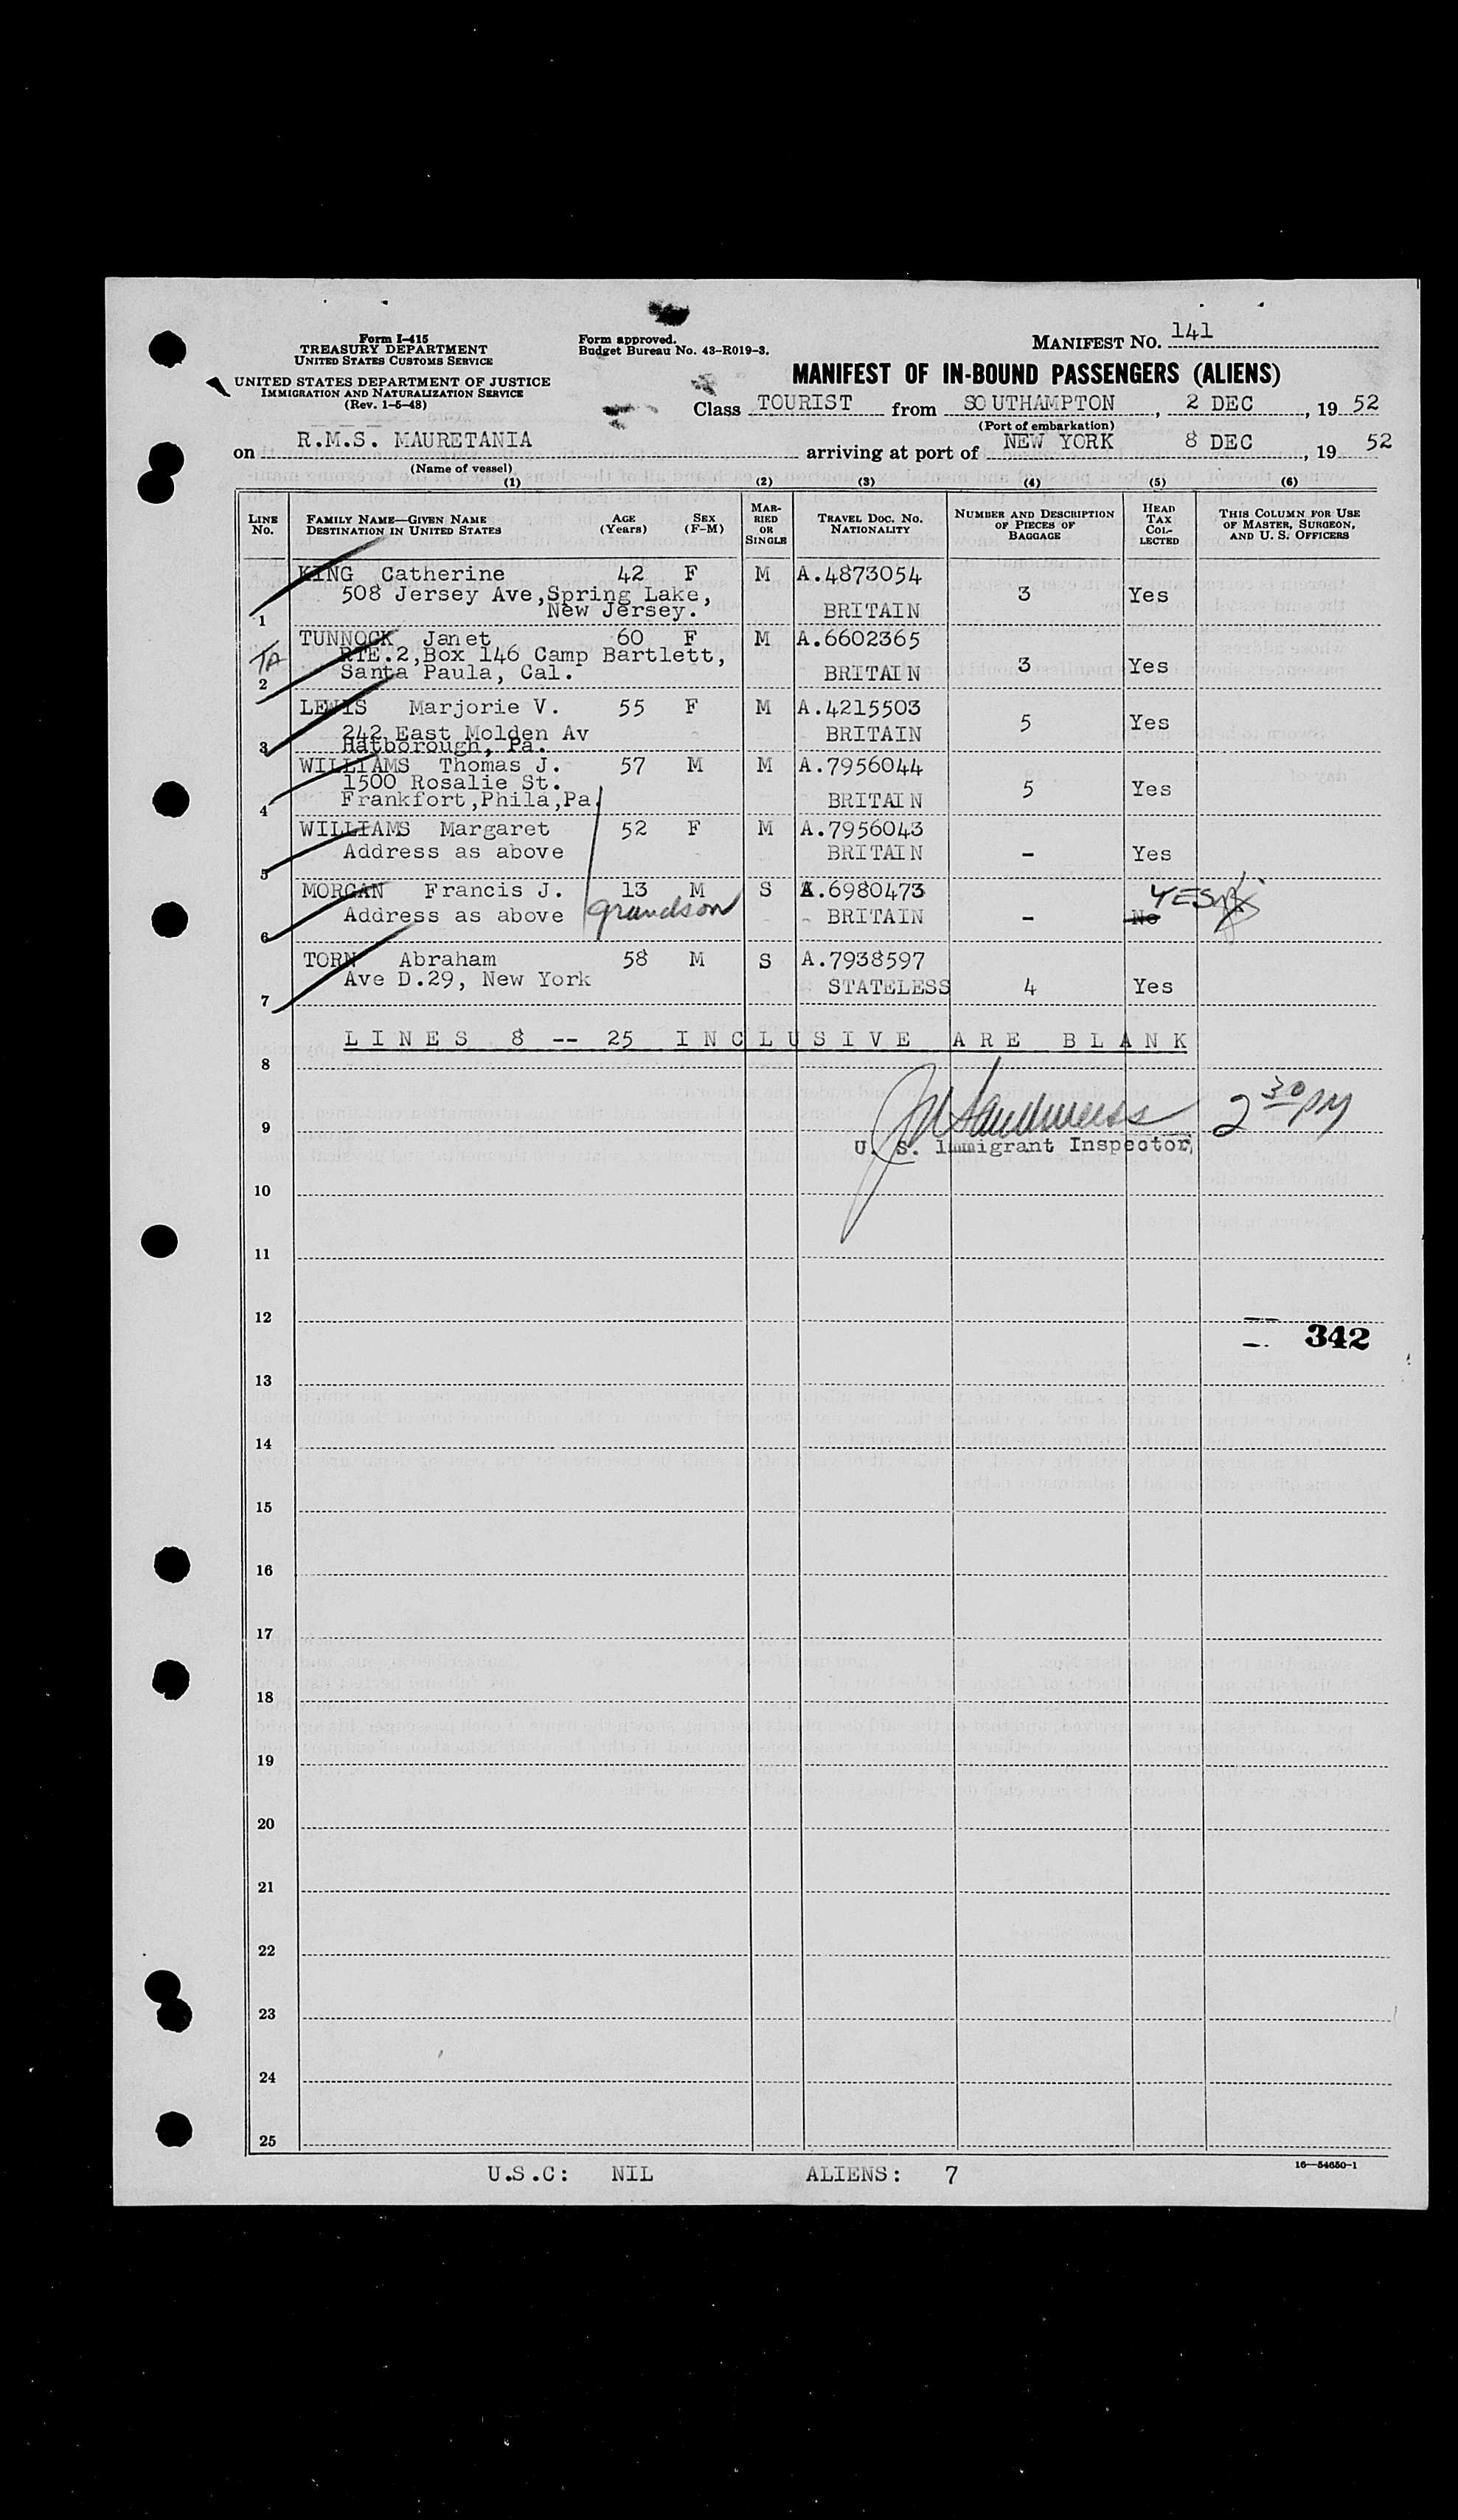 Form I-415
TREASURY DEPARTMENT
UNITED STATES CUSTOMS SERVICE
UNITED STATES DEPARTMENT OF JUSTICE
IMMIGRATION AND NATURALIZATION SERVICE
(Rev. 1-5-48)
Form approved.
Budget Bureau No. 43-R019-3.
MANIFEST No. 141
MANIFEST OF IN-BOUND PASSENGERS (ALIENS)
Class TOURIST from SOUTHAMPTON, 2 DEC, 19 52
(Port of embarkation)
on R.M.S. MAURETANIA arriving at port of NEW YORK 8 DEC, 19 52
(Name of vessel)
(1) (2) (3) (4) (5) (6)
LINE No. FAMILY NAME—GIVEN NAME DESTINATION IN UNITED STATES AGE (Years) SEX (F-M) MARRIED OR SINGLE TRAVEL DOC. NO. NATIONALITY NUMBER AND DESCRIPTION OF PIECES OF BAGGAGE HEAD TAX COLLECTED THIS COLUMN FOR USE OF MASTER, SURGEON, AND U. S. OFFICERS
KING Catherine 42 F M A.4873054
508 Jersey Ave,Spring Lake, 3 Yes
1 New Jersey. BRITAIN
TUNNOCK Janet 60 F M A.6602365
TA RTE.2,Box 146 Camp Bartlett, 3 Yes
2 Santa Paula, Cal. BRITAIN
LEWIS Marjorie V. 55 F M A.4215503
242 East Molden Av BRITAIN 5 Yes
3 Hatborough, Pa.
WILLIAMS Thomas J. 57 M M A.7956044
1500 Rosalie St. 5 Yes
4 Frankfort,Phila,Pa. BRITAIN
WILLIAMS Margaret 52 F M A.7956043
5 Address as above BRITAIN - Yes
MORGAN Francis J. 13 M S A.6980473 YES
6 Address as above grandson BRITAIN - No
TORN Abraham 58 M S A.7938597
7 Ave D.29, New York STATELESS 4 Yes
LINES 8 -- 25 INCLUSIVE ARE BLANK
8
9 2 30 PM
U. S. Immigrant Inspector
10
11
12
342
13
14
15
16
17
18
19
20
21
22
23
24
25
16—54650-1
U.S.C: NIL ALIENS: 7